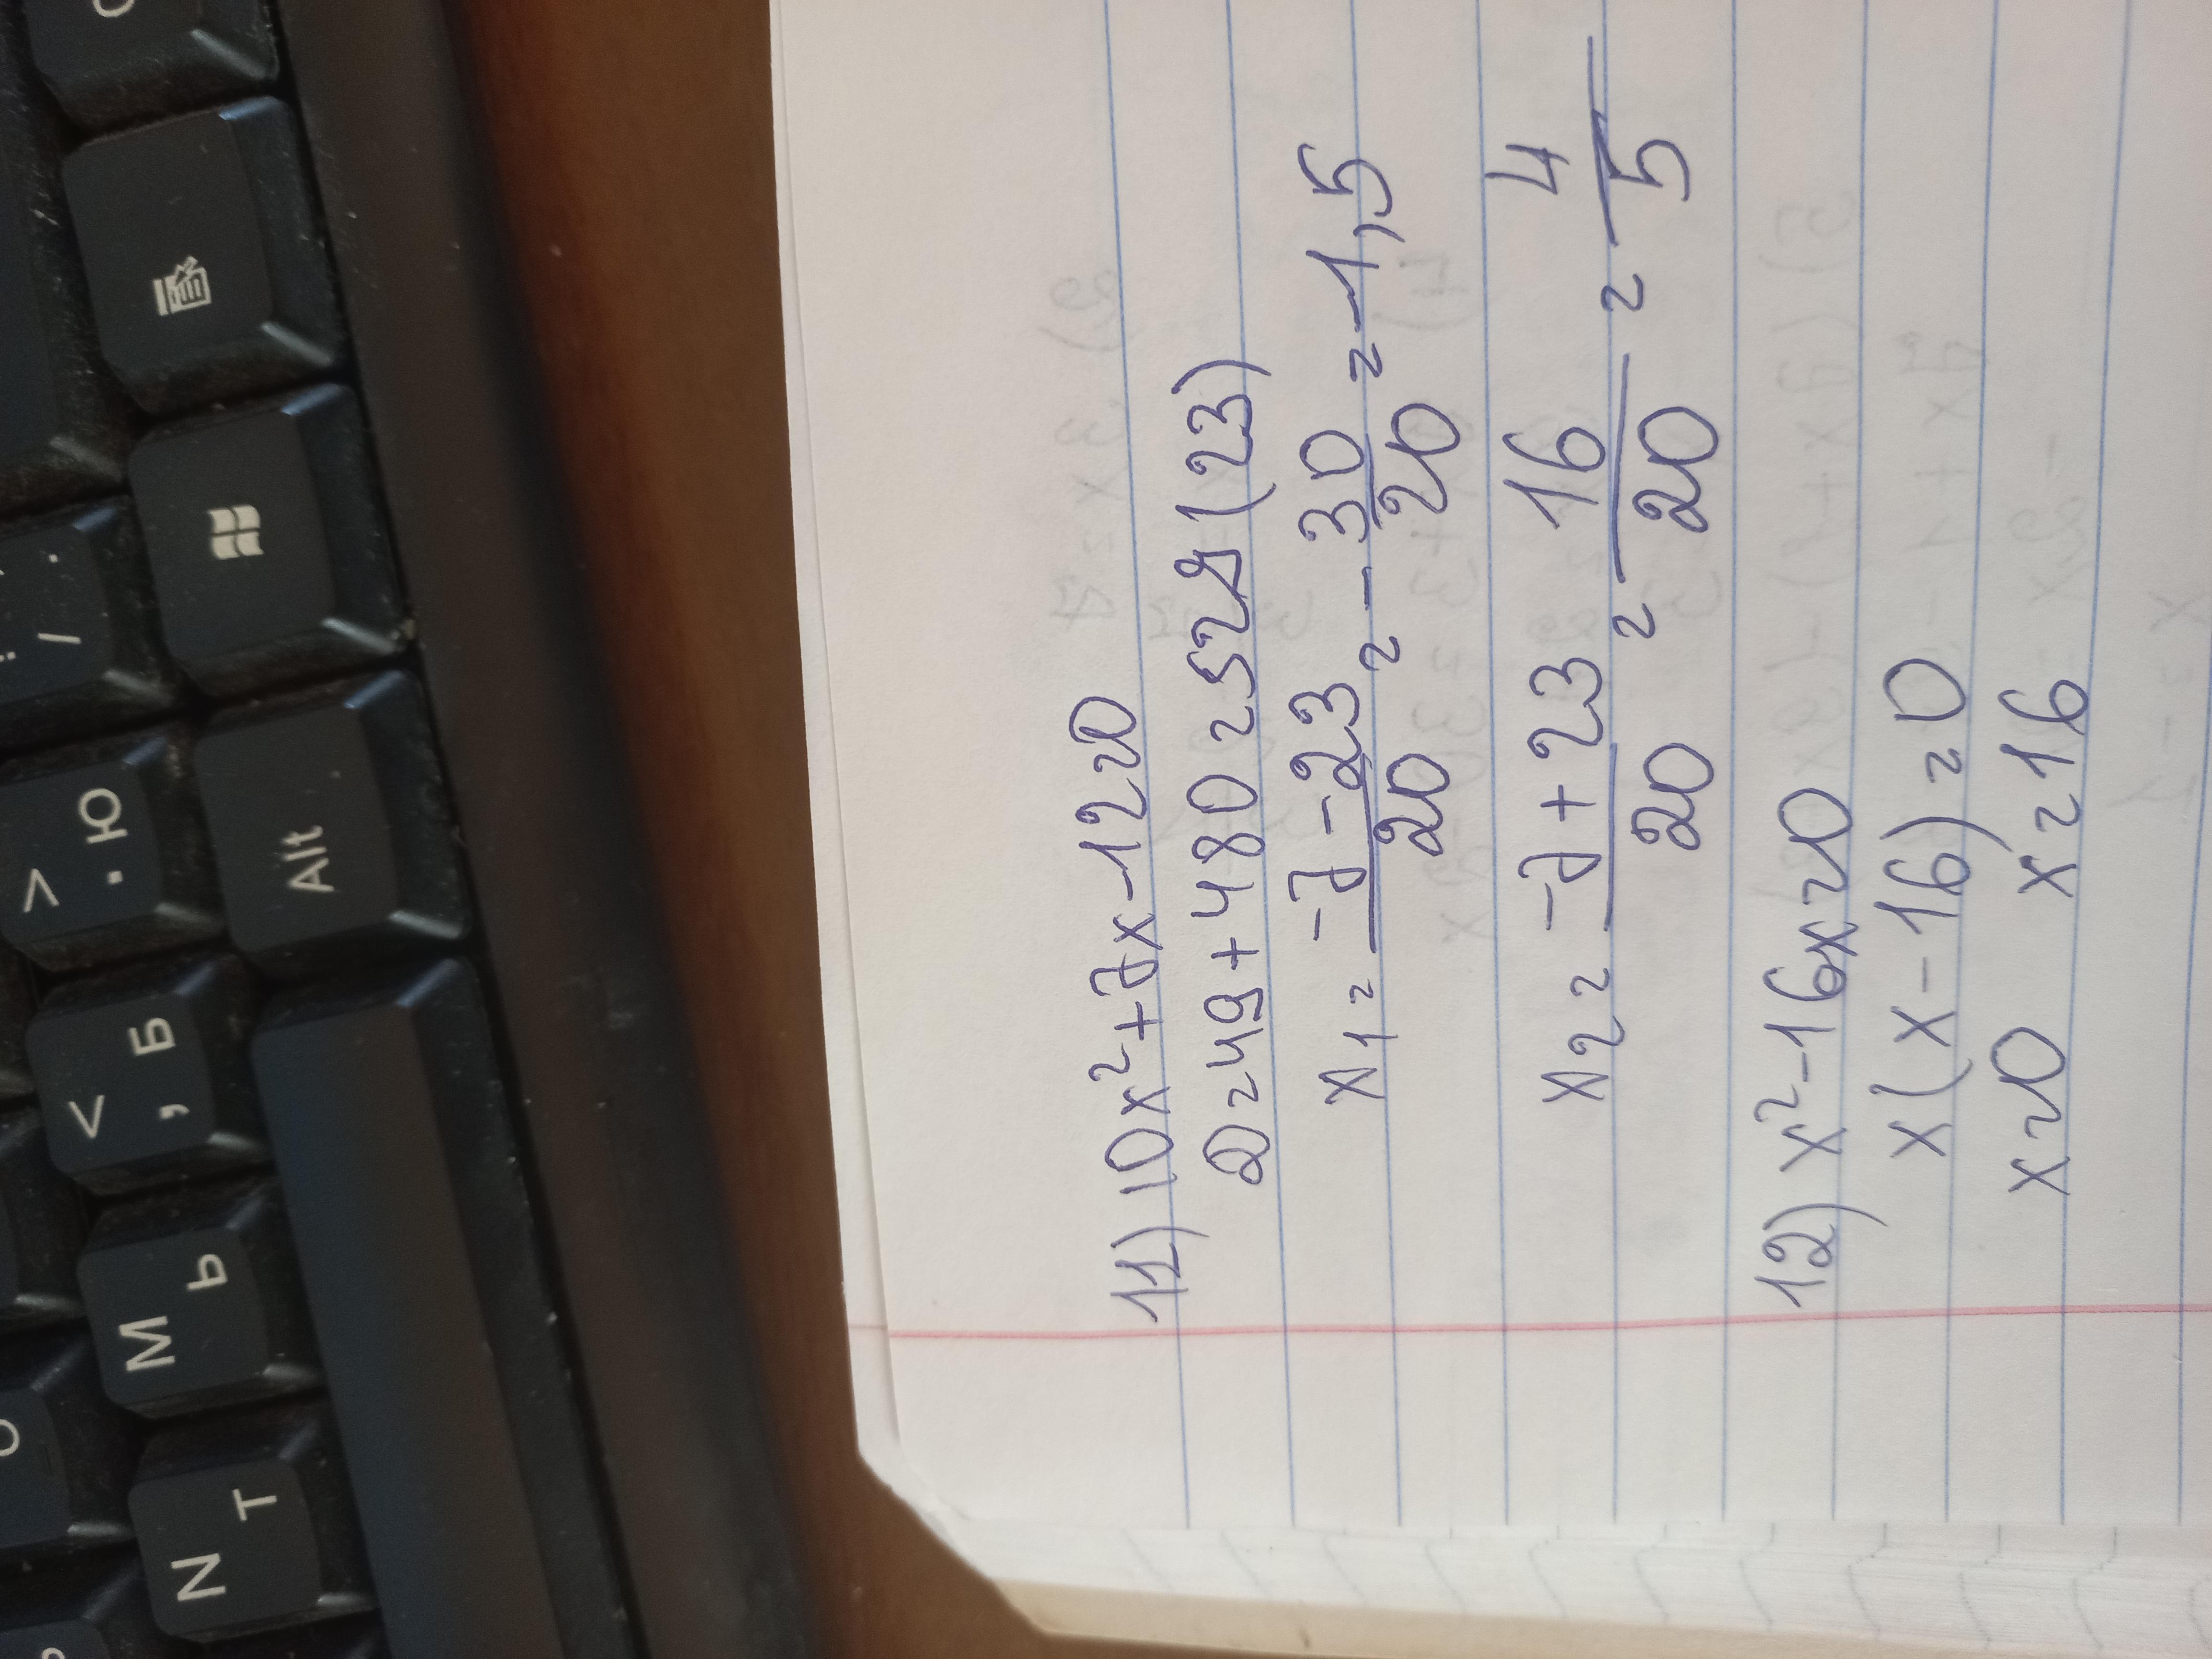 11) 10x²+7x-12=0
D=49+480=529(23)
x1=-7-23/20=-30/20=-1,5
x2=-7+23/20=16/20=4/5
12) x²-16x=0
x(x-16)=0
x=0 x=16
Alt
> . Ю
< , Б
М Ь
N Т
/ .